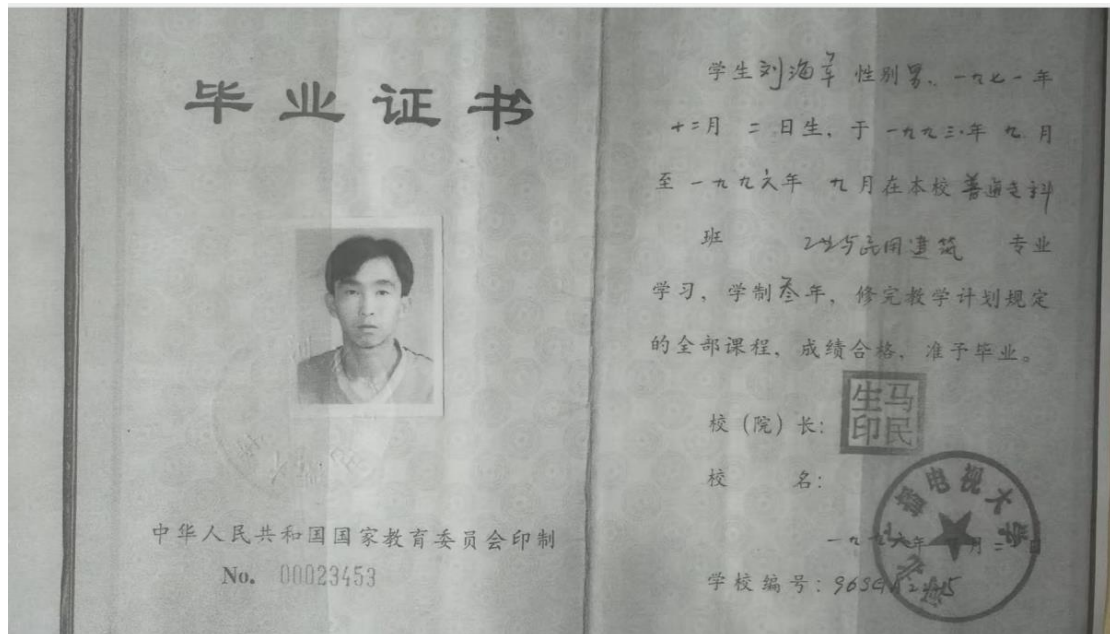 毕业证书
中华人民共和国国家教育委员会印制
No. 00023453
学生刘海军 性别男, 一九七一年
十二月 二 日生, 于 一九九三年 九 月
至 一九九六年 九月在本校 普通专科
班 工业与民用建筑 专业
学习, 学制叁年, 修完教学计划规定
的全部课程, 成绩合格, 准予毕业。
校(院)长:
马民生印
校 名:
播电视大学
一九九六年 月
学校编号: